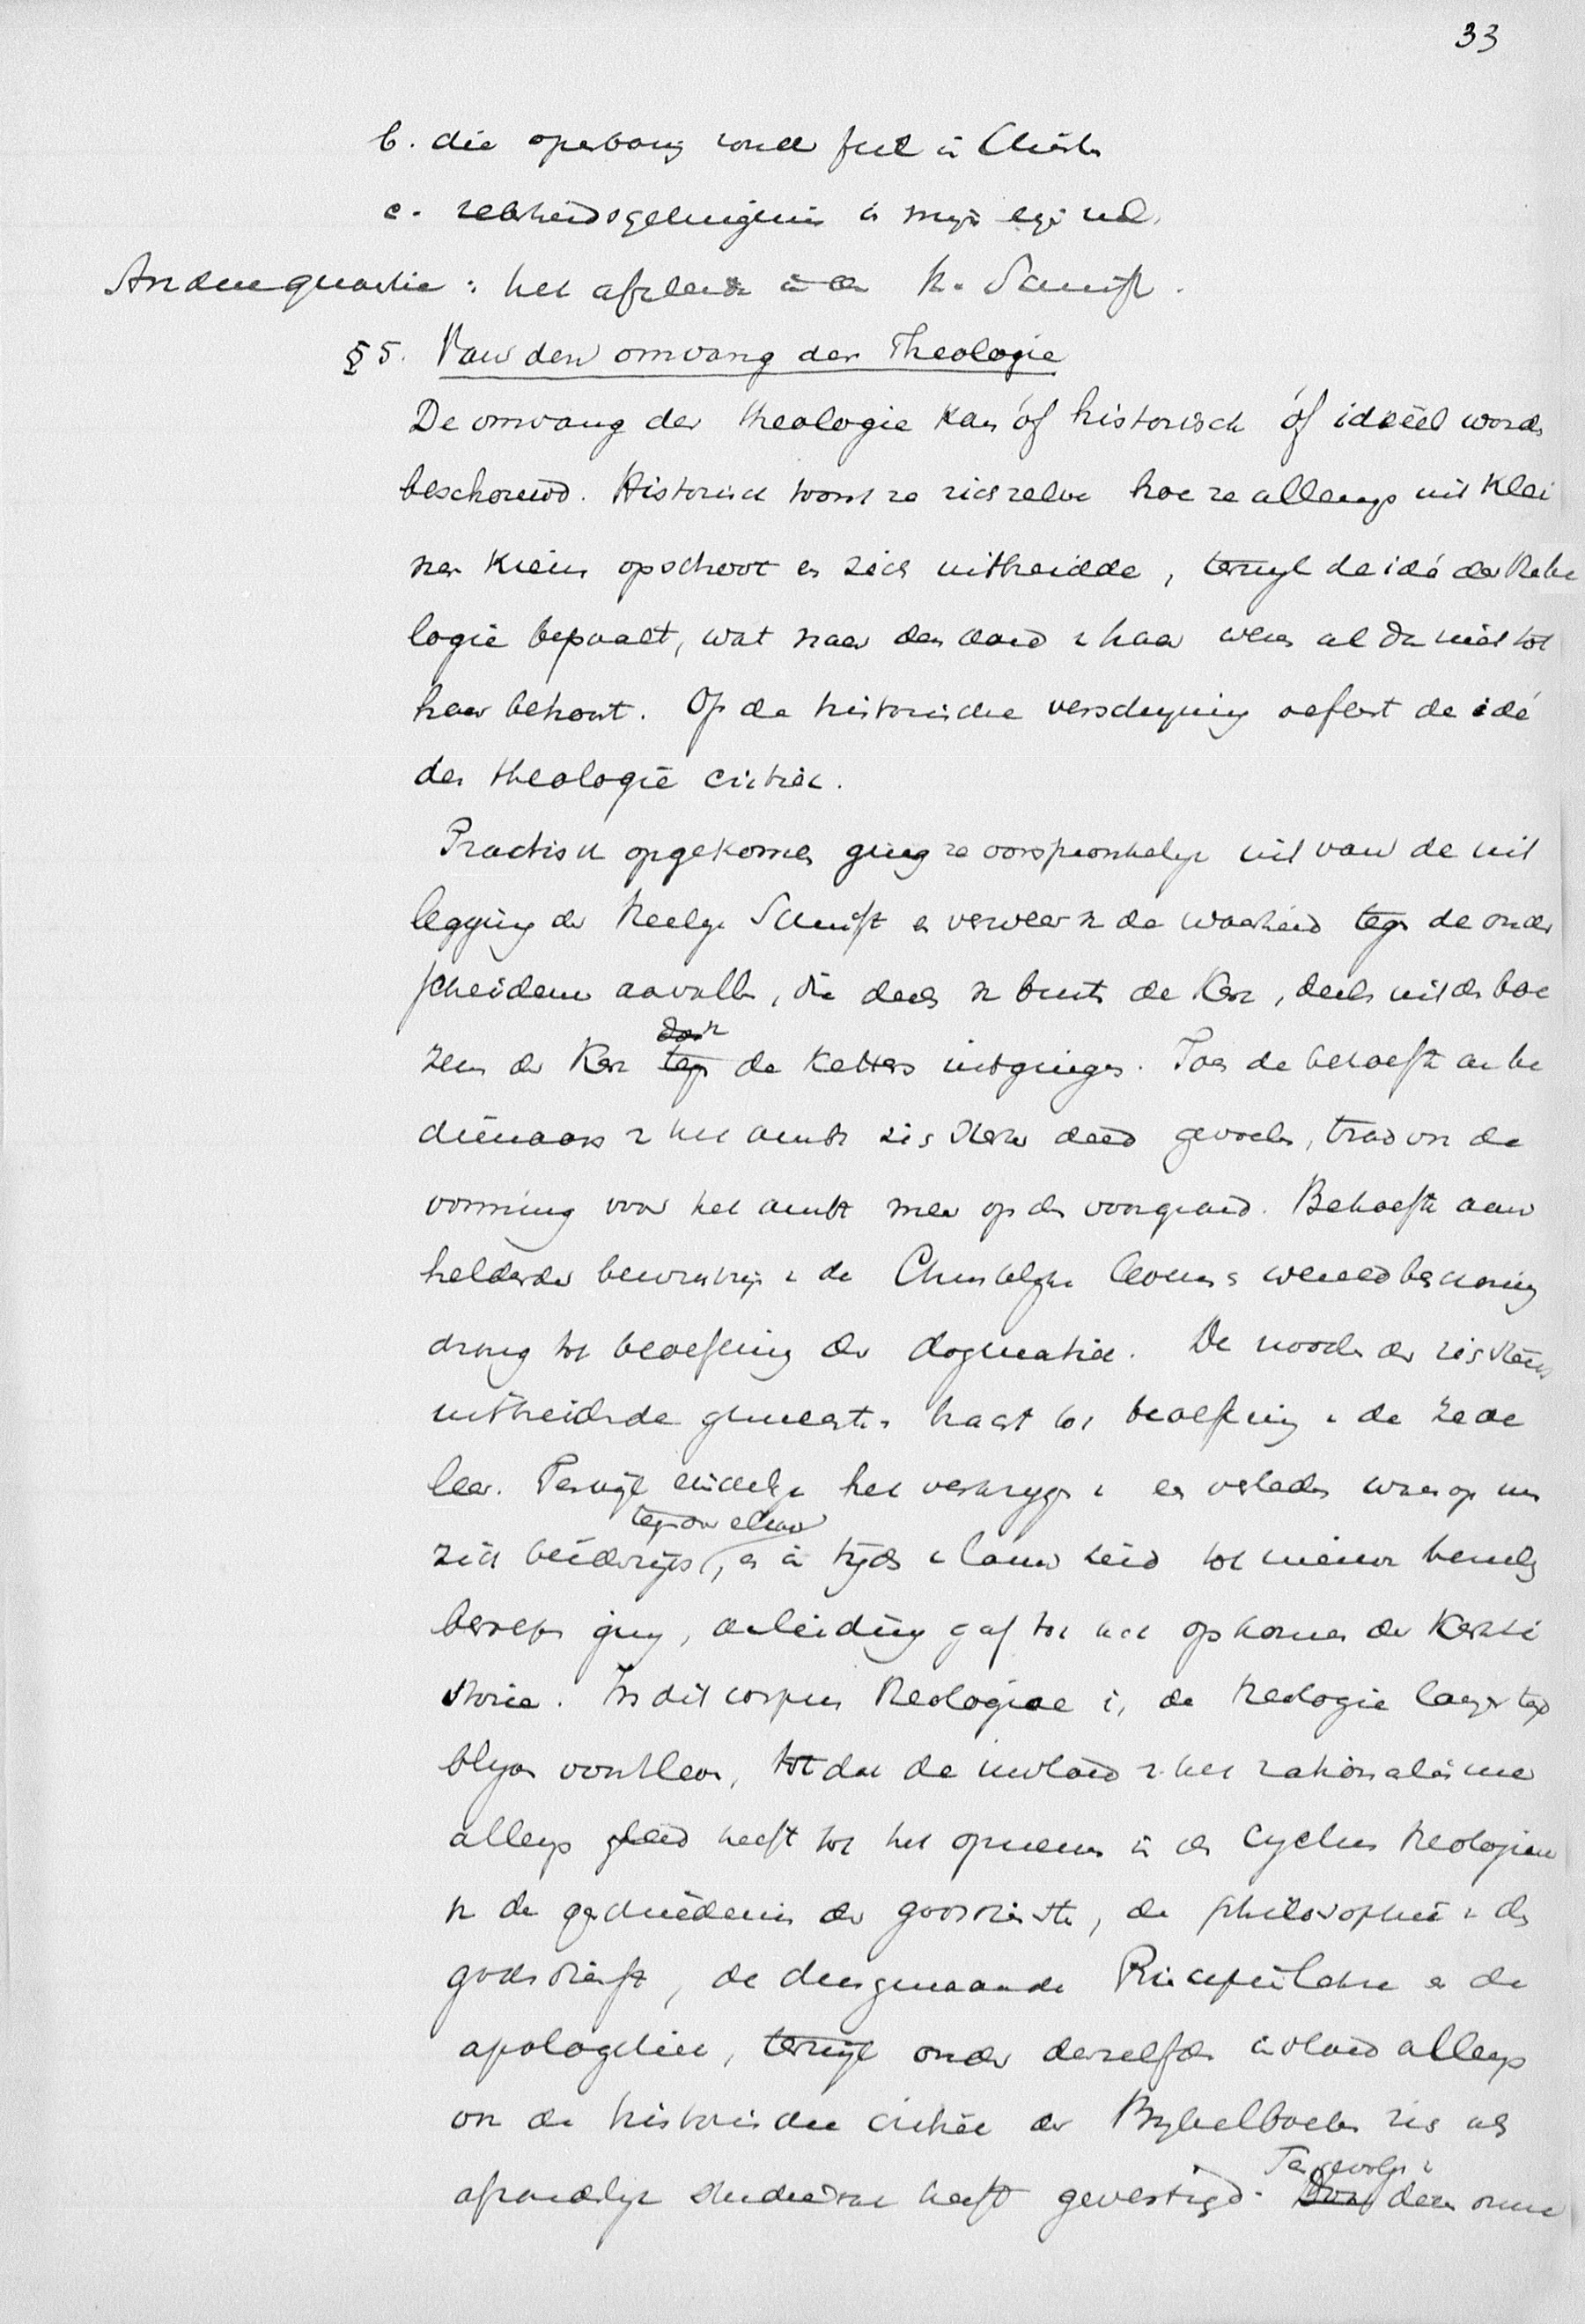 33
b. die openbaring wordt feit in Christus
c. zekerheidsgetuigenis in mijn eigen ziel.
Anderequaestie: het afgeleide in de h. Schrift.
§ 5. Van den omvang der Theologie
De omvang der theologie kan óf historisch óf ideëel worden
beschouwd. Historisch toont ze zichzelve hoe ze allengs uit klei
ner kiem opschoot en zich uitbreidde, terwijl de idé der theo
logie bepaalt, wat naar den aard v haar wezen al dan niet tot
haar behoort. Op de historische verschijning oefent de idé
der theologie critiek.
Practisch opgekomen ging ze oorspronkelijk uit van de uit
legging der Heilige Schrift en verweer v de waarheid tegen de onder
scheidene aanvallen, die deels v buiten de Kerk, deels uit den boe
zem der Kerk door de Ketters uitgingen. Toen de behoefte aan be
dienaars v het ambt zich sterker deed gevoelen, trad ook de
vorming voor het ambt meer op den voorgrond. Behoefte aan
helderder bewustzijn v de Christelijke levens en wereldbeschouwing
drong tot beoefening der dogmatiek. De nooden der zich steeds
uitbreidende gemeenten bracht tot beoefening v de zede
leer. Terwijl eindelijk het verkrijgen v een verleden waarop men
zich beiderzijds tegenover elkaar, en in tijden v lauwheid tot nieuwe bemoediging
beroepen ging, aanleiding gaf tot het opkomen der Kerkhi
storie. In dit corpus theologiae is de theologie langen tijd
blijven voortleven, totdat de invloed v het rationalisme
allengs geleid heeft tot het opnemen in den cyclus theologiae
v de geschiedenis der godsdiensten, de philosophie v den
godsdienst, de dusgenaamde Principienlehre en de
apologetiek, terwijl onder denzelfden invloed allengs
ook de historische critiek der Bijbelboeken zich als
afzonderlijk studievak heeft gevestigd. Tengevolge v deze onna